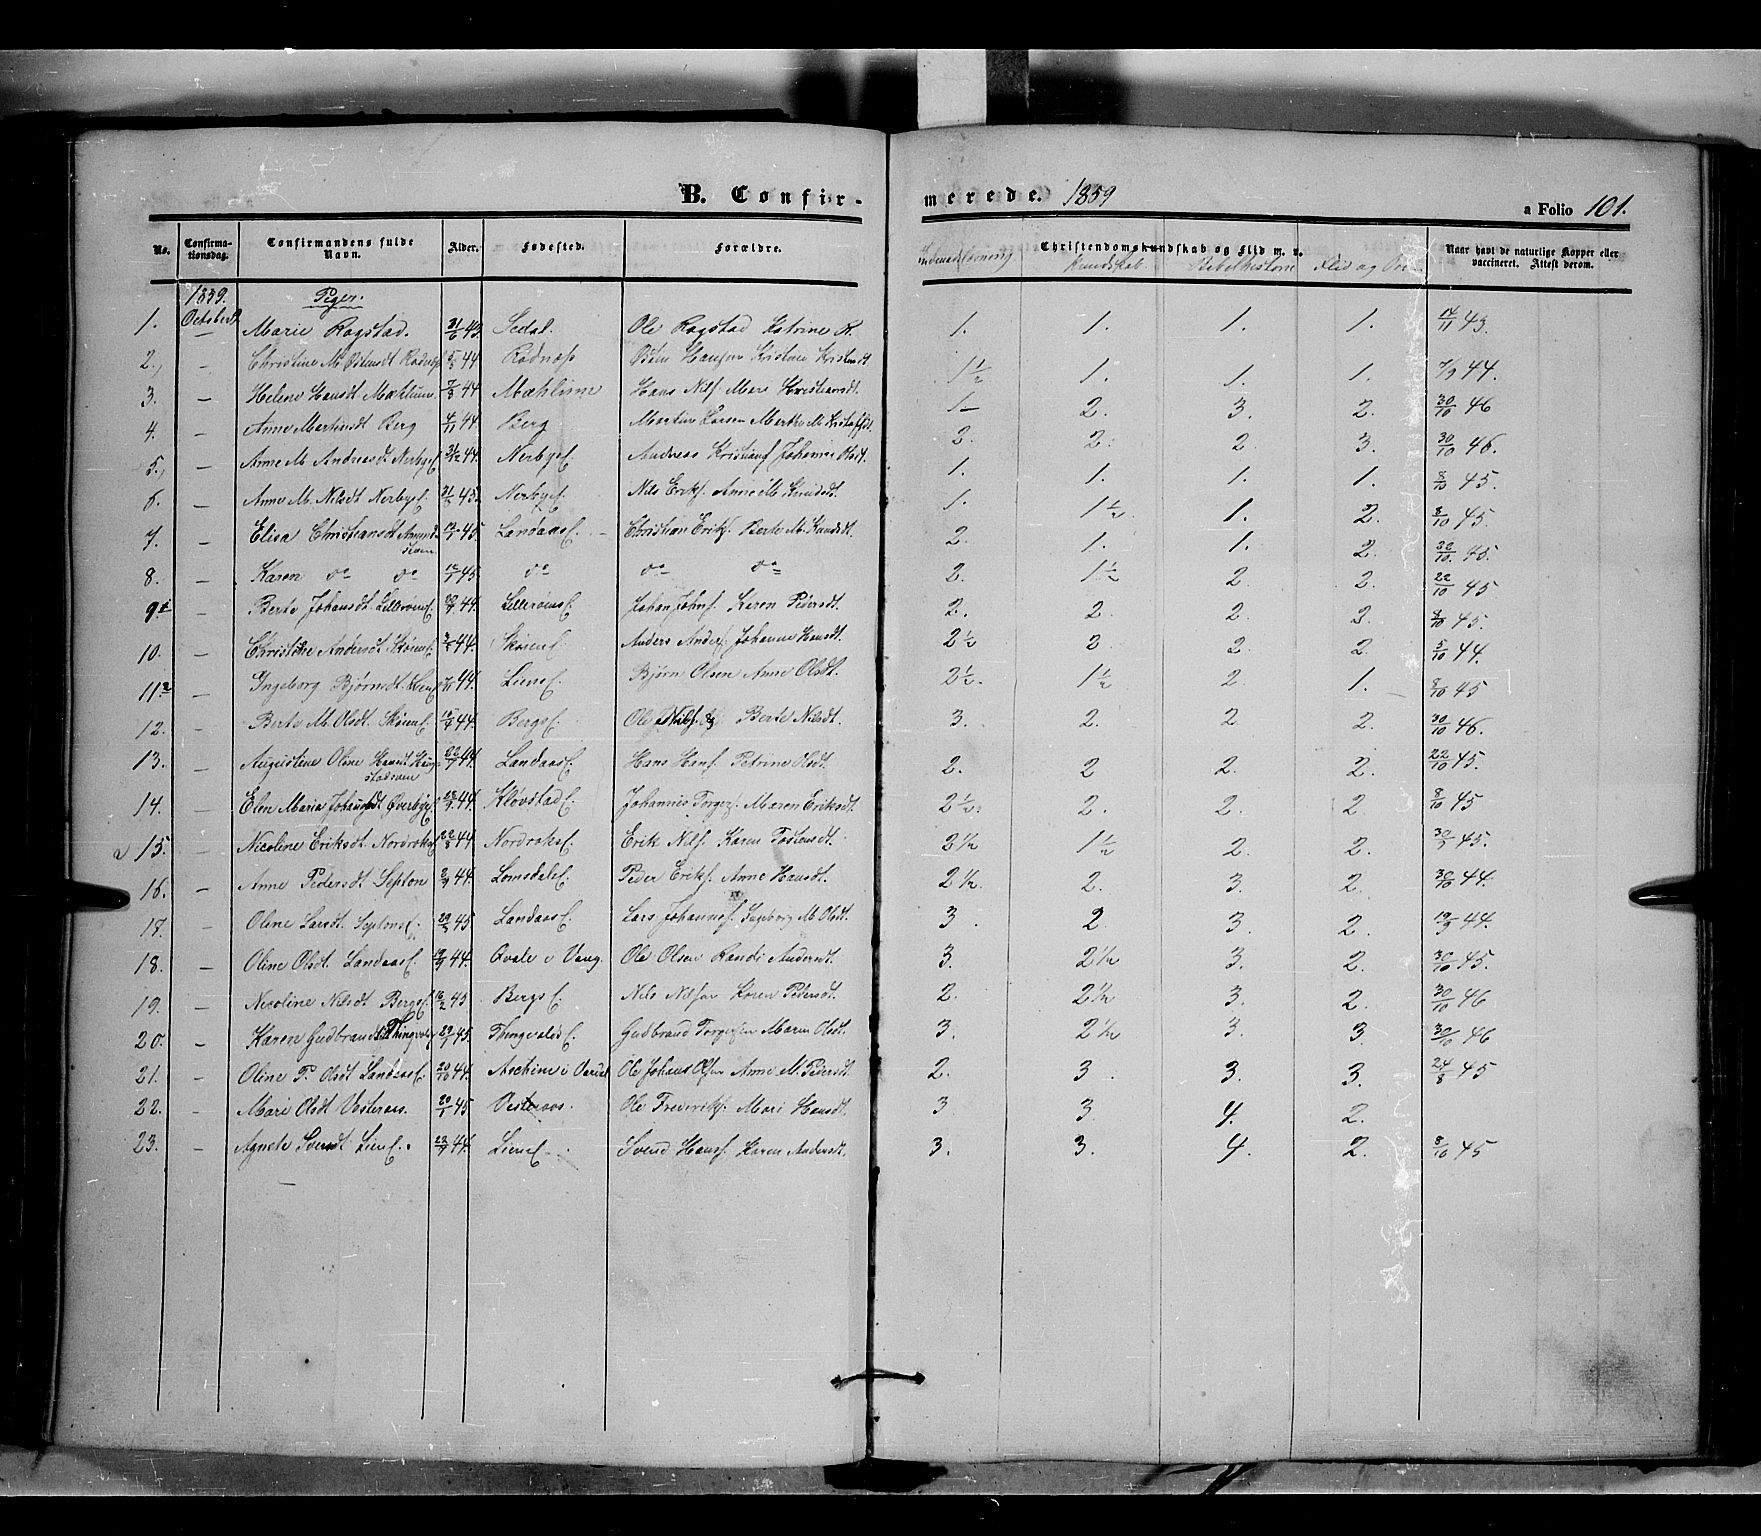 B. Confir- merede. 1859 a Folio 101.
No. Confirmationsdag. Confirmandens fulde Navn. Alder. Fødested. Forældre. Indenadslæsning Christendomskundskab og Flid m. v. Kundskab. Bibelhistorie Flid og Naar havt de naturlige Kopper eller vaccineret. Attest derom.
1859. Piger.
1. October Marie Rogstad. 43. Sedal. Ole Rogstad Katrine R. 1. 1. 1. 1. 14/11 43.
2. — Christine M. Østensdt 44 Rodnæss Østen Hansen 1½ 1. 1. 1. 7/9 44.
3. — Helene Hansdt Mæhlum 7/8 44 Mæhlum Hans Nilss Mari Kristiansdt. 1- 2. 3. 2. 30/10 46
4. — Anne Martinsdt Berg 44. Berg Martin Larsen Marthe M. 2. 2. 2. 3. 30/10 46.
5. — Anne M. Andreasdt Nerbyeſ. 44. Nerbyeſ. Andreas Kristianſ Johanne Olsdt. 1. 1. 1. 1. 8/10 45.
6. — Anne M. Nilsdt Nerbyeſ. 45. Nerbyeſ. Nils Erikſ. Anne M. Knudsdt. 1. 1½. 1. 2. 8/10 45.
7. — Elisa Christiansdt 45. Landaasſ. Christian Erikſ. Berte M. Knudsdt. 2. 1. 1. 2. 22/10. 45.
8. — Karen do do 45. do do do 2. 1½ 2. 2. 22/10 45
9. — Berte Johansdt. Lillerøenſ. 44. Lillerøenſ. Johan Johnſ. Karen Pedersdt. 2. 2. 2. 3. 8/10 45.
10. — Christine Andersdt Skøienſ. 44. Skøienſ. Anders Anderſ Johanne Hansdt. 2½ 2. 2. 2. 5/10 44.
11. — Ingeborg Bjørnsdt. Lienſ. 44. Lienſ. Bjørn Olsen Anne Olsdt. 2½. 1½ 2. 1. 8/10 45
12. — Berte M. Olsdt. Skøienſ. 44. Bergsſ. Ole Nilsſ. Berte Nilsdt. 3. 2. 2 2. 30/10 46.
13. — Augustine Oline Hansdt Haug- 44. Landaasſ. Hans Hansſ. Petrine Olsdt. 2. 2 2. 2. 22/10 45.
14. — Elen Maria Johannesdt Øverbyeſ. 44. Kløvstadſ. Johannes Torgerſ. Maren Eriksdt. 2½. 2. 2. 2. 8/10 45
15. — Nicoline Eriksdt Nordroksſ. 22/8 44 Nordroksſ. Erik Nilsſ. Karen Tostensdt. 2½ 1½ 2. 2. 45.
16. — Anne Pedersdt Septon 44. Lomsdaleſ. Peder Erikſ. Anne Hansdt. 2½. 2. 3. 2. 30/10 44.
17. — Oline Larsdt. Septonsſ. 45 Landaasſ. Lars Johanneſ. Ingeborg M. Olsdt. 3. 2. 3. 2. 19/9 44.
18. — Oline Olsdt. Landaasſ. 44. Qvale i Vang. Ole Olsen Randi Andersdt. 3. 2½ 3. 2. 30/10 45.
19. — Nicoline Nilsdt Bergsſ. 16/2 45 Bergsſ. Nils Nilsen Karen Pedersdt. 2. 2½ 3. 2. 30/10 46
20. — Karen Gudbrandsdt Thingvoldſ. 45. Thingvoldsſ. Gudbrand Torgersen Maren Olsdt. 3. 2½ 3. 3. 30/10 46
21. — Oline P. Olsdt Landaasſ. 20/10 44. i Vardal Ole Johans Olsen Anne M. Pedersdt. 2. 3. 3. 3. 24/8 45
22. — Mari Olsdt Vesteraas. 20/1 45 Vesteraas. Ole Frederikſ. Mari Hansdt. 3. 3. 4. 2.
23. — Agnete Svendsdt Lienſ. 23/9 44. Lienſ. Svend Hansſ. Karen Andersdt. 3. 3. 4. 2. 8/10 45